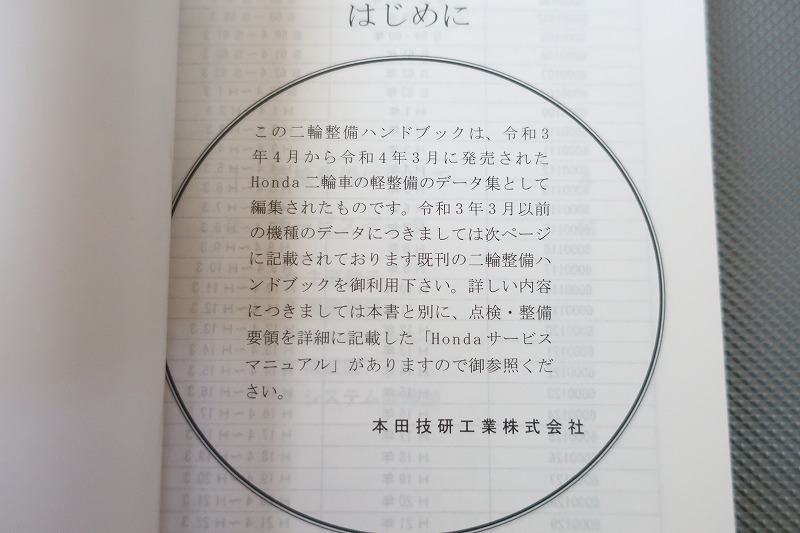 はじめに
この二輪整備ハンドブックは、令和3
年4月から令和4年3月に発売された
Honda二輪車の軽整備のデータ集として
編集されたものです。令和3年3月以前
の機種のデータにつきましては次ページ
に記載されております既刊の二輪整備ハ
ンドブックを御利用下さい。詳しい内容
につきましては本書と別に、点検・整備
要領を詳細に記載した「Hondaサービス
マニュアル」がありますので御参照くだ
さい。
本田技研工業株式会社